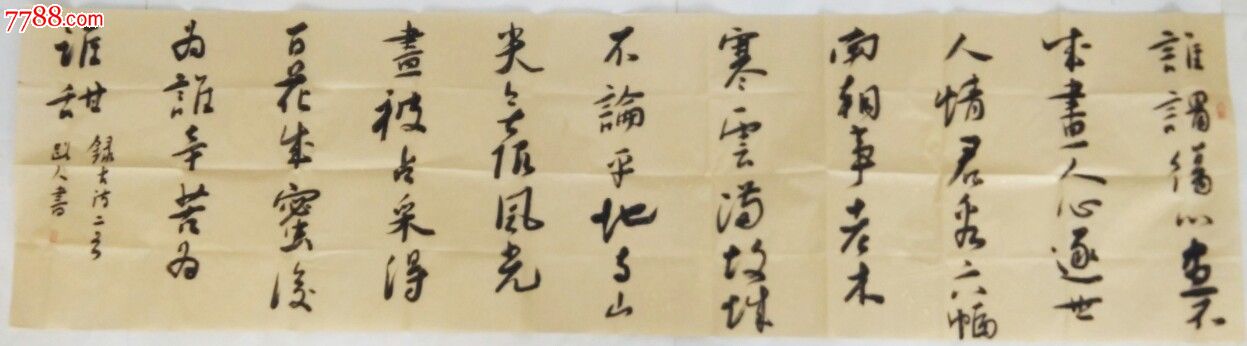 7788.com
誰謂傷心畫不
成畫人心逐世
人情君看六幅
南朝事老木
寒雲滿故城
不論平地与山
尖無限風光
盡被占采得
百花成蜜後
為誰辛苦為
誰甜
錄古詩二首
人書